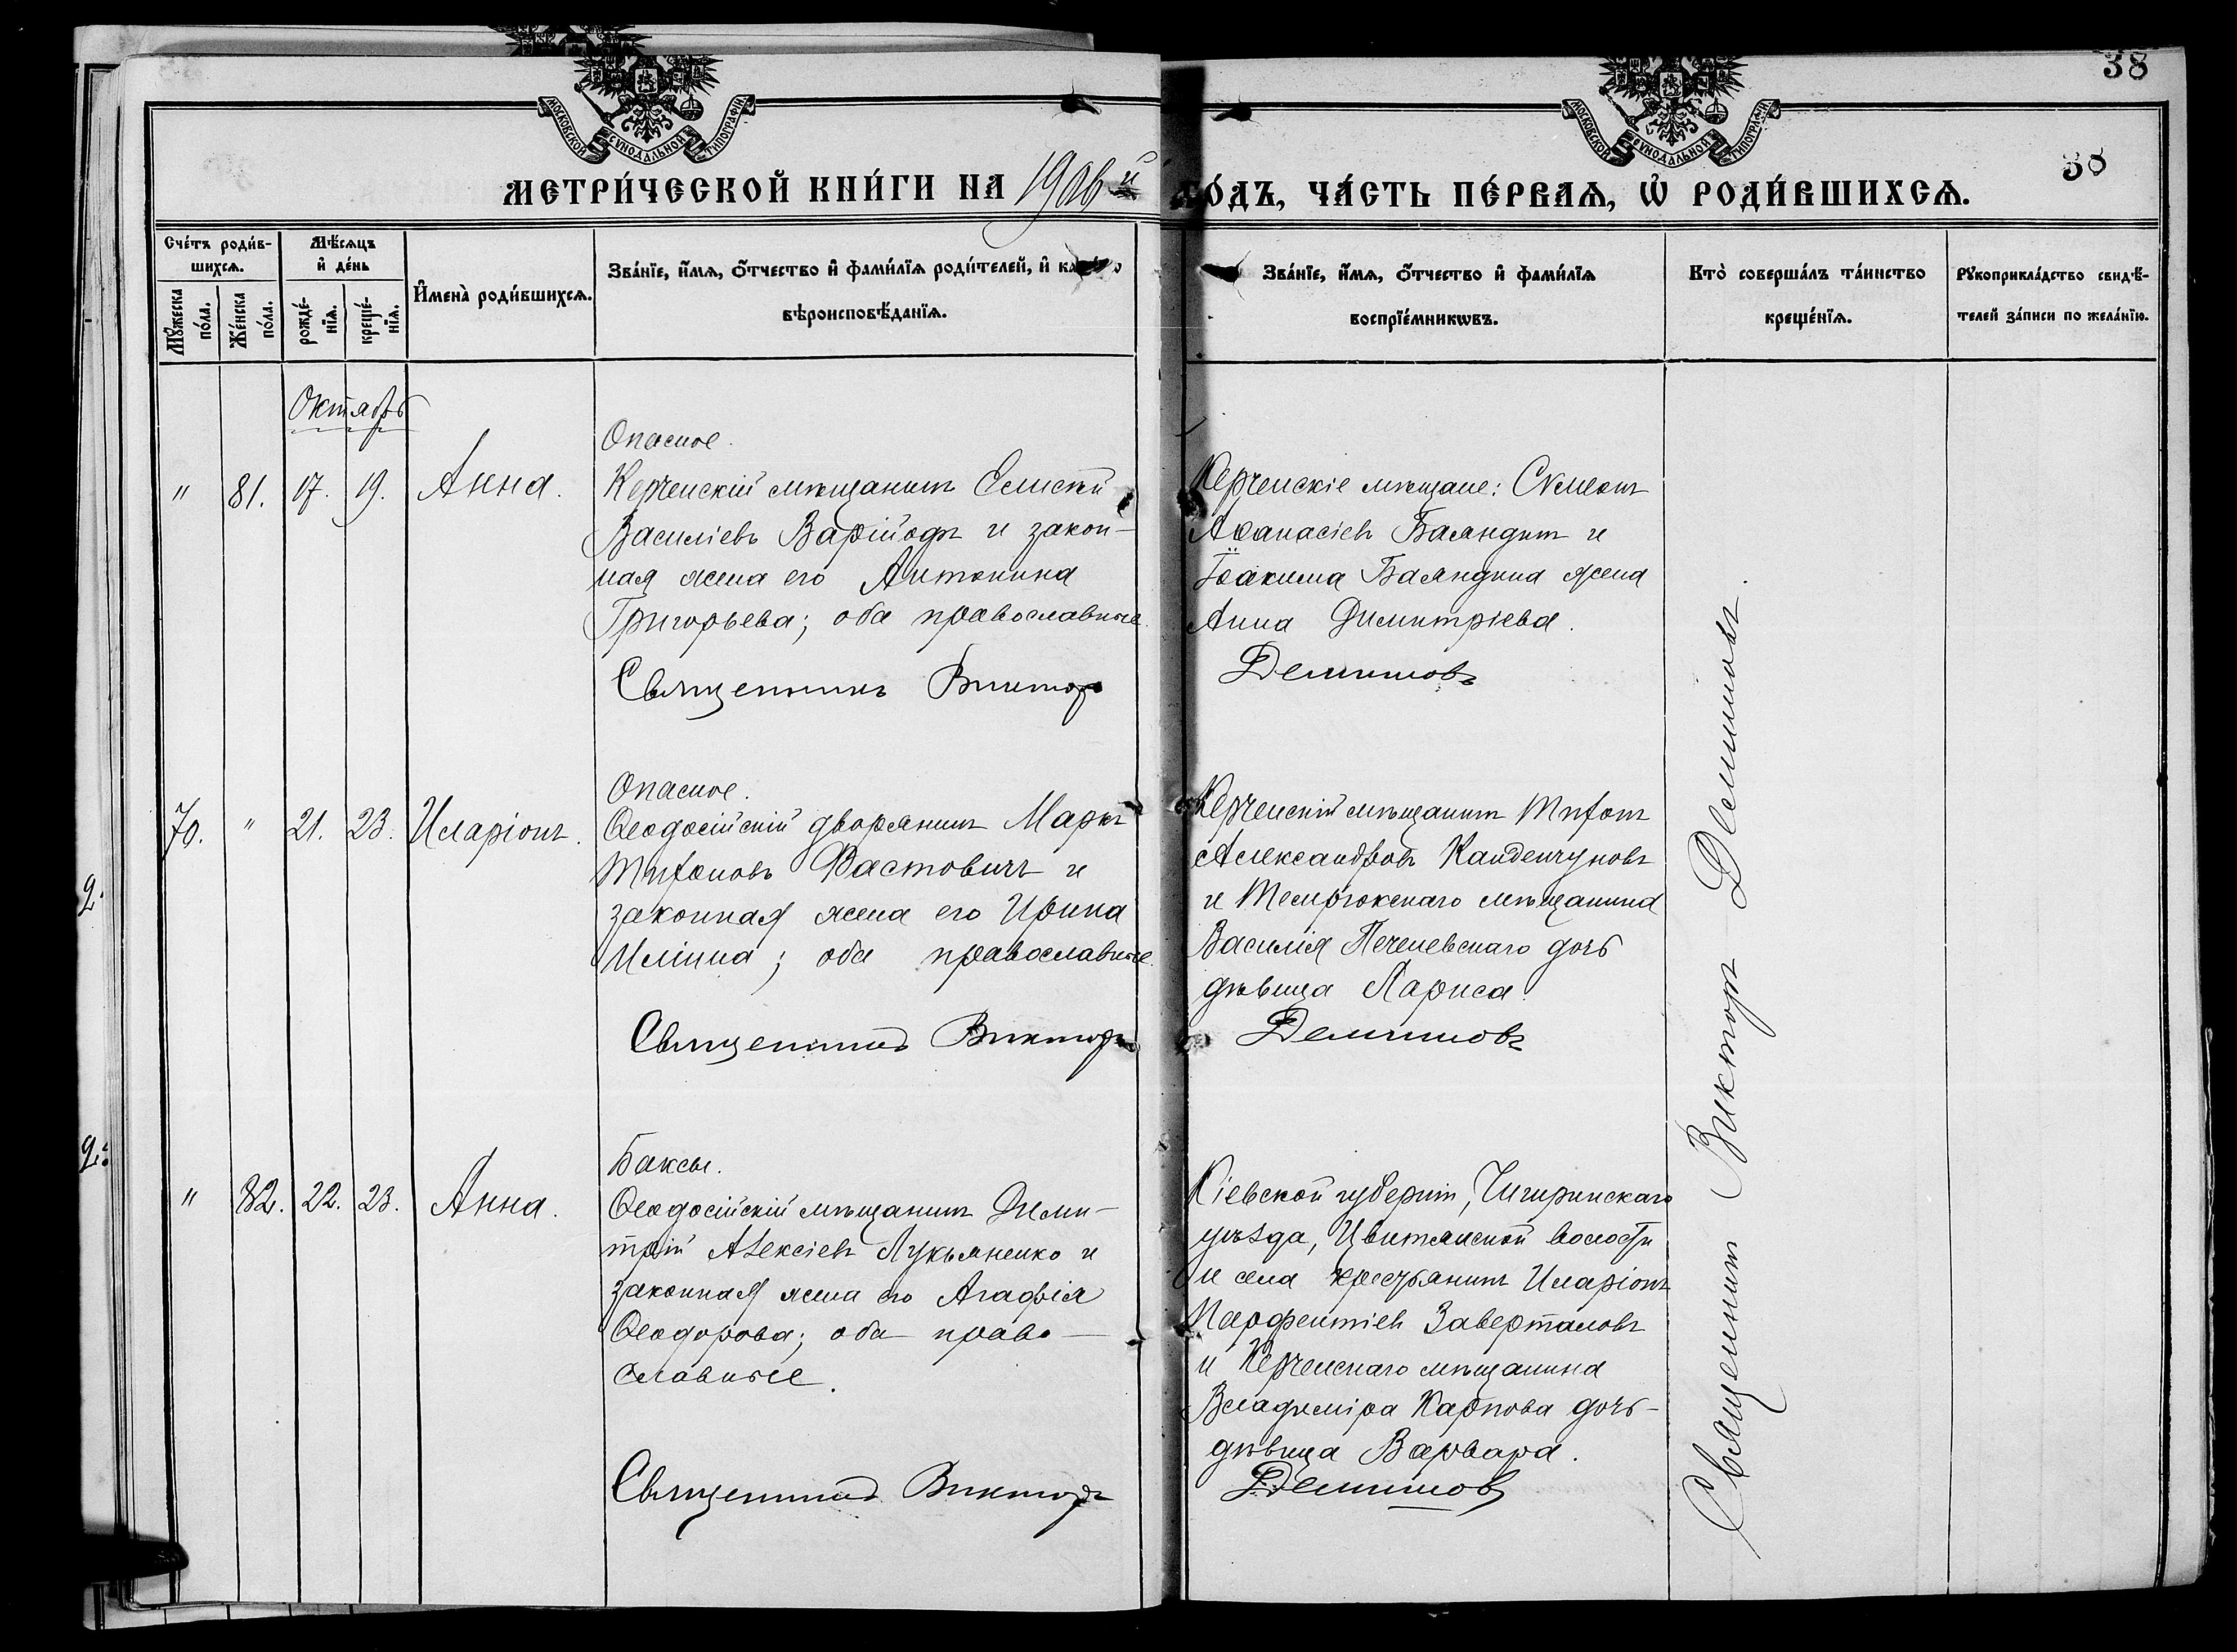 38
МОСКОВСКОЙ СѴНОДАЛЬНОЙ ТИПОГРАФІИ
МОСКОВСКОЙ СѴНОДАЛЬНОЙ ТИПОГРАФІИ
38
МЕТРИ́ЧЕСКОЙ КНИ́ГИ НА 190 й ГО́ДЪ, ЧА́СТЬ ПЕ́РВАѦ, Ѡ҆ РОДИ́ВШИХСѦ.
Сче́тъ роди́вшихсѧ.
Мꙋ́жеска по́ла.
Же́нска по́ла.
Мѣ́сѧцъ и҆ де́нь
рожде́нїѧ.
креще́нїѧ.
И҆мена̀ роди́вшихсѧ.
Зва́нїе, и҆́мѧ, ѻ҆́тчество и҆ фами́лїѧ роди́телей, и҆
вѣроисповѣ́данїѧ.
Зва́нїе, и҆́мѧ, ѻ҆́тчество и҆ фами́лїѧ
воспрїе́мникѡвъ.
Кто̀ соверша́лъ та́инство
креще́нїѧ.
Рꙋкоприкла́дство свидѣ́-
телей за́писи по жела́нїю.
Октябрь
Опасное.
" 81. 17. 19. Анна.
Керченскій мѣщанинъ
Василіевъ и закон-
ная жена его Антонина
Григорьева; оба православные.
Священникъ Викторъ
Керченскіе мѣщане: Сѵмеонъ
Аѳанасіевъ Баляндинъ и
Іоакима Баляндина жена
Анна Димитріева.
Демяновъ
Опасное.
70. " 21. 23. Иларіонъ.
Ѳеодосійскій дворянинъ Маркъ
Трифоновъ Фастовичъ и
законная жена его Ирина
Иліина; оба православные.
Священникъ Викторъ
Керченскій мѣщанинъ Трифонъ
Александровъ
и Темрюкскаго мѣщанина
Василія Печеневскаго дочь
дѣвица Лариса.
Демяновъ
Баксы.
" 82. 22. 23. Анна.
Ѳеодосійскій мѣщанинъ Дими-
трій Алексіевъ Лукьяненко и
законная жена его Агафія
Ѳеодорова; оба право-
славные.
Священникъ Викторъ
Кіевской губерніи, Чигиринскаго
уѣзда, Цвитянской волости
и села крестьянинъ Иларіонъ
Парфентіевъ Заверталовъ
и Керченскаго мѣщанина
Владиміра Карпова дочь-
дѣвица Варвара.
Демяновъ
Священникъ Викторъ Демяновъ.